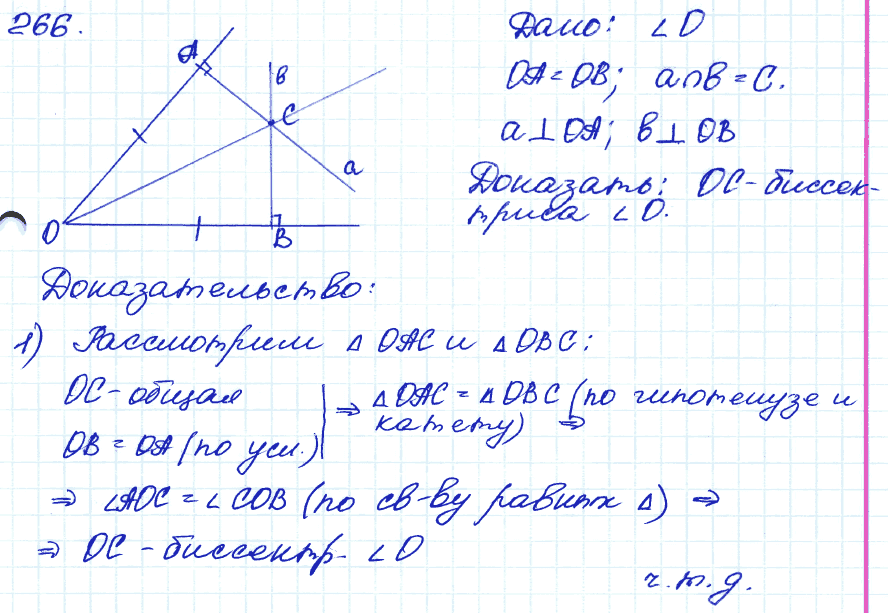 266.
Дано: ∠O
OA = OB; a∩b = C.
a⊥OA; b⊥OB
Доказать: OC-биссек-
триса ∠O.
A
b
C
a
O
B
Доказательство:
1) Рассмотрим △OAC и △OBC:
OC-общая
OB = OA (по усл.)
⇒ △OAC = △OBC (по гипотенузе и
катету) ⇒
⇒ ∠AOC = ∠COB (по св-ву равных △) ⇒
⇒ OC - биссектр. ∠O
ч.т.д.